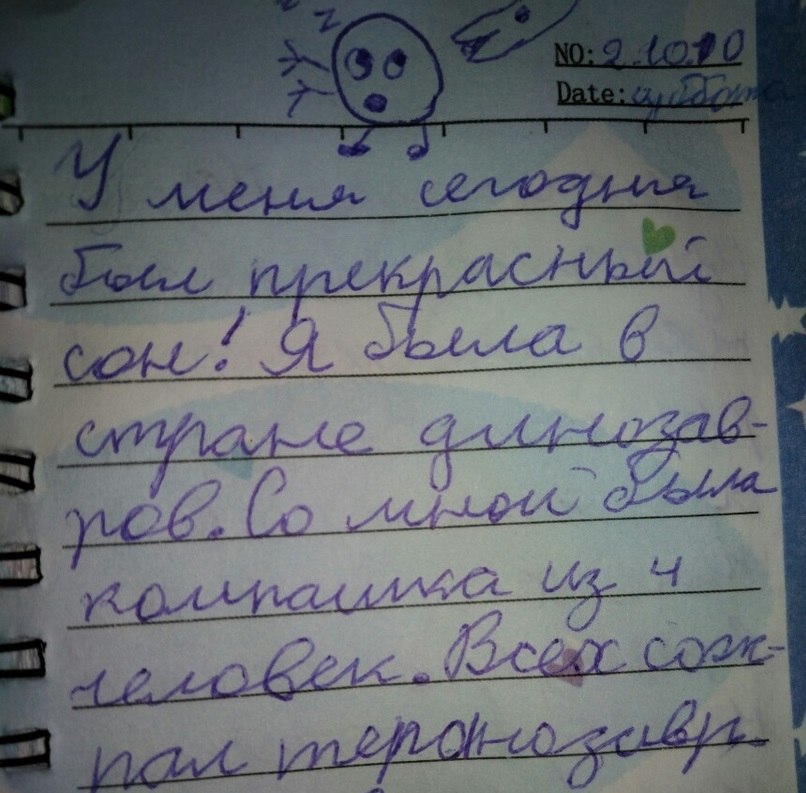 NO: 2.10.10
Date: суббота
У меня сегодня
был прекрасный
сон! Я была в
стране динозав-
ров. Со мной была
компашка из 4
человек. Всех сож-
рал теранозавр